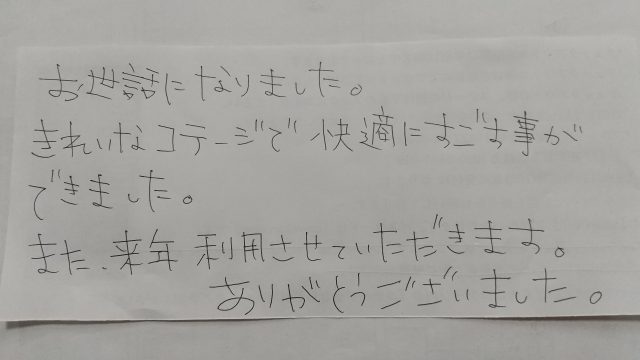 お世話になりました。
きれいなコテージで快適にすごす事が
できました。
また、来年利用させていただきます。
ありがとうございました。